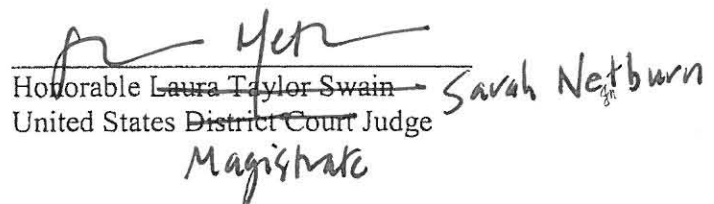 Honorable Laura Taylor Swain Sarah Netburn
United States District Court Judge
Magistrate